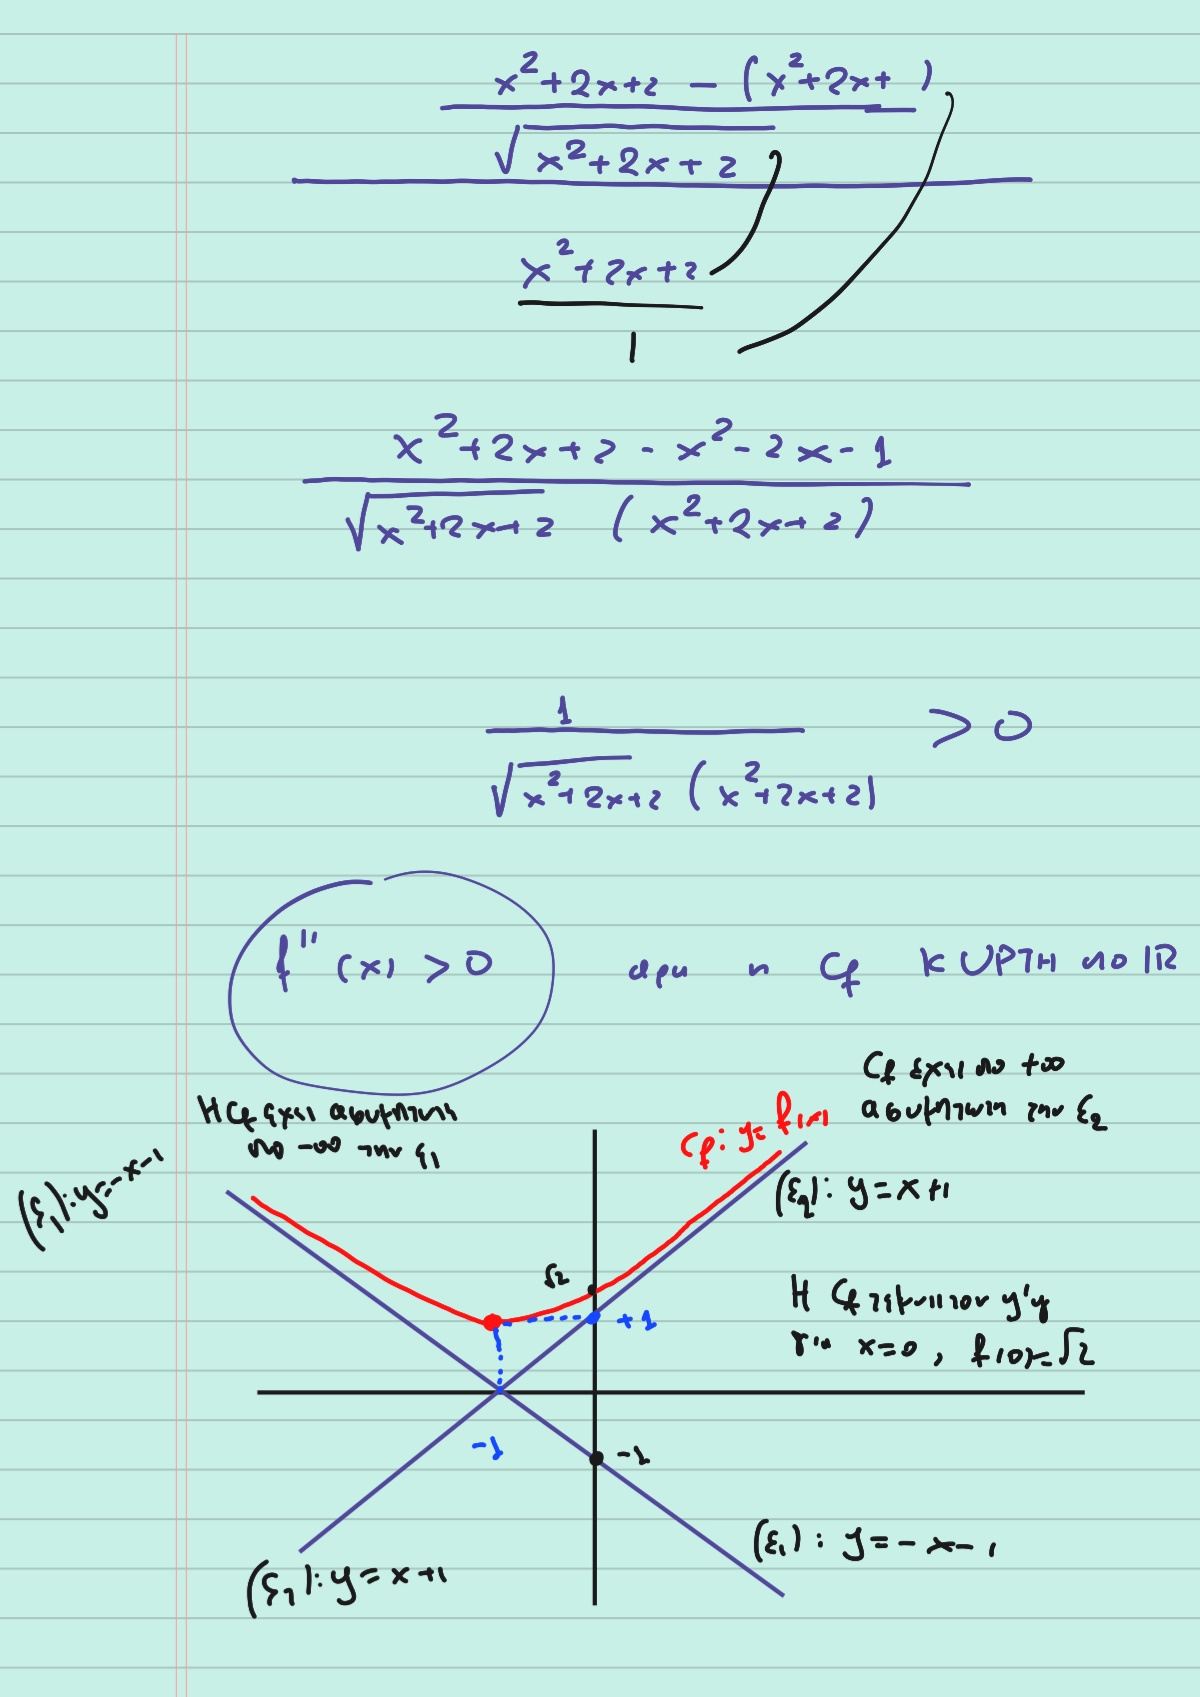 x²+2x+2 − (x²+2x+ )
√x²+2x+2
x²+2x+2
1
x²+2x+2 - x²-2x-1
√x²+2x+2 (x²+2x+2)
1 > 0
√x²+2x+2 (x²+2x+2)
f''(x) > 0 αρα η Cf ΚΥΡΤΗ στο ΙR
Cf έχει στο +∞
ασύμπτωτη την ε₂
Η Cf έχει ασύμπτωτη
στο -∞ την ε₁
Cf: y=f(x)
(ε₁): y=-x-1
(ε₂): y=x+1
√2
+1
Η Cf τέμνει τον y'y
για x=0, f(0)=√2
-1
-1
(ε₁): y=-x-1
(ε₂): y=x+1